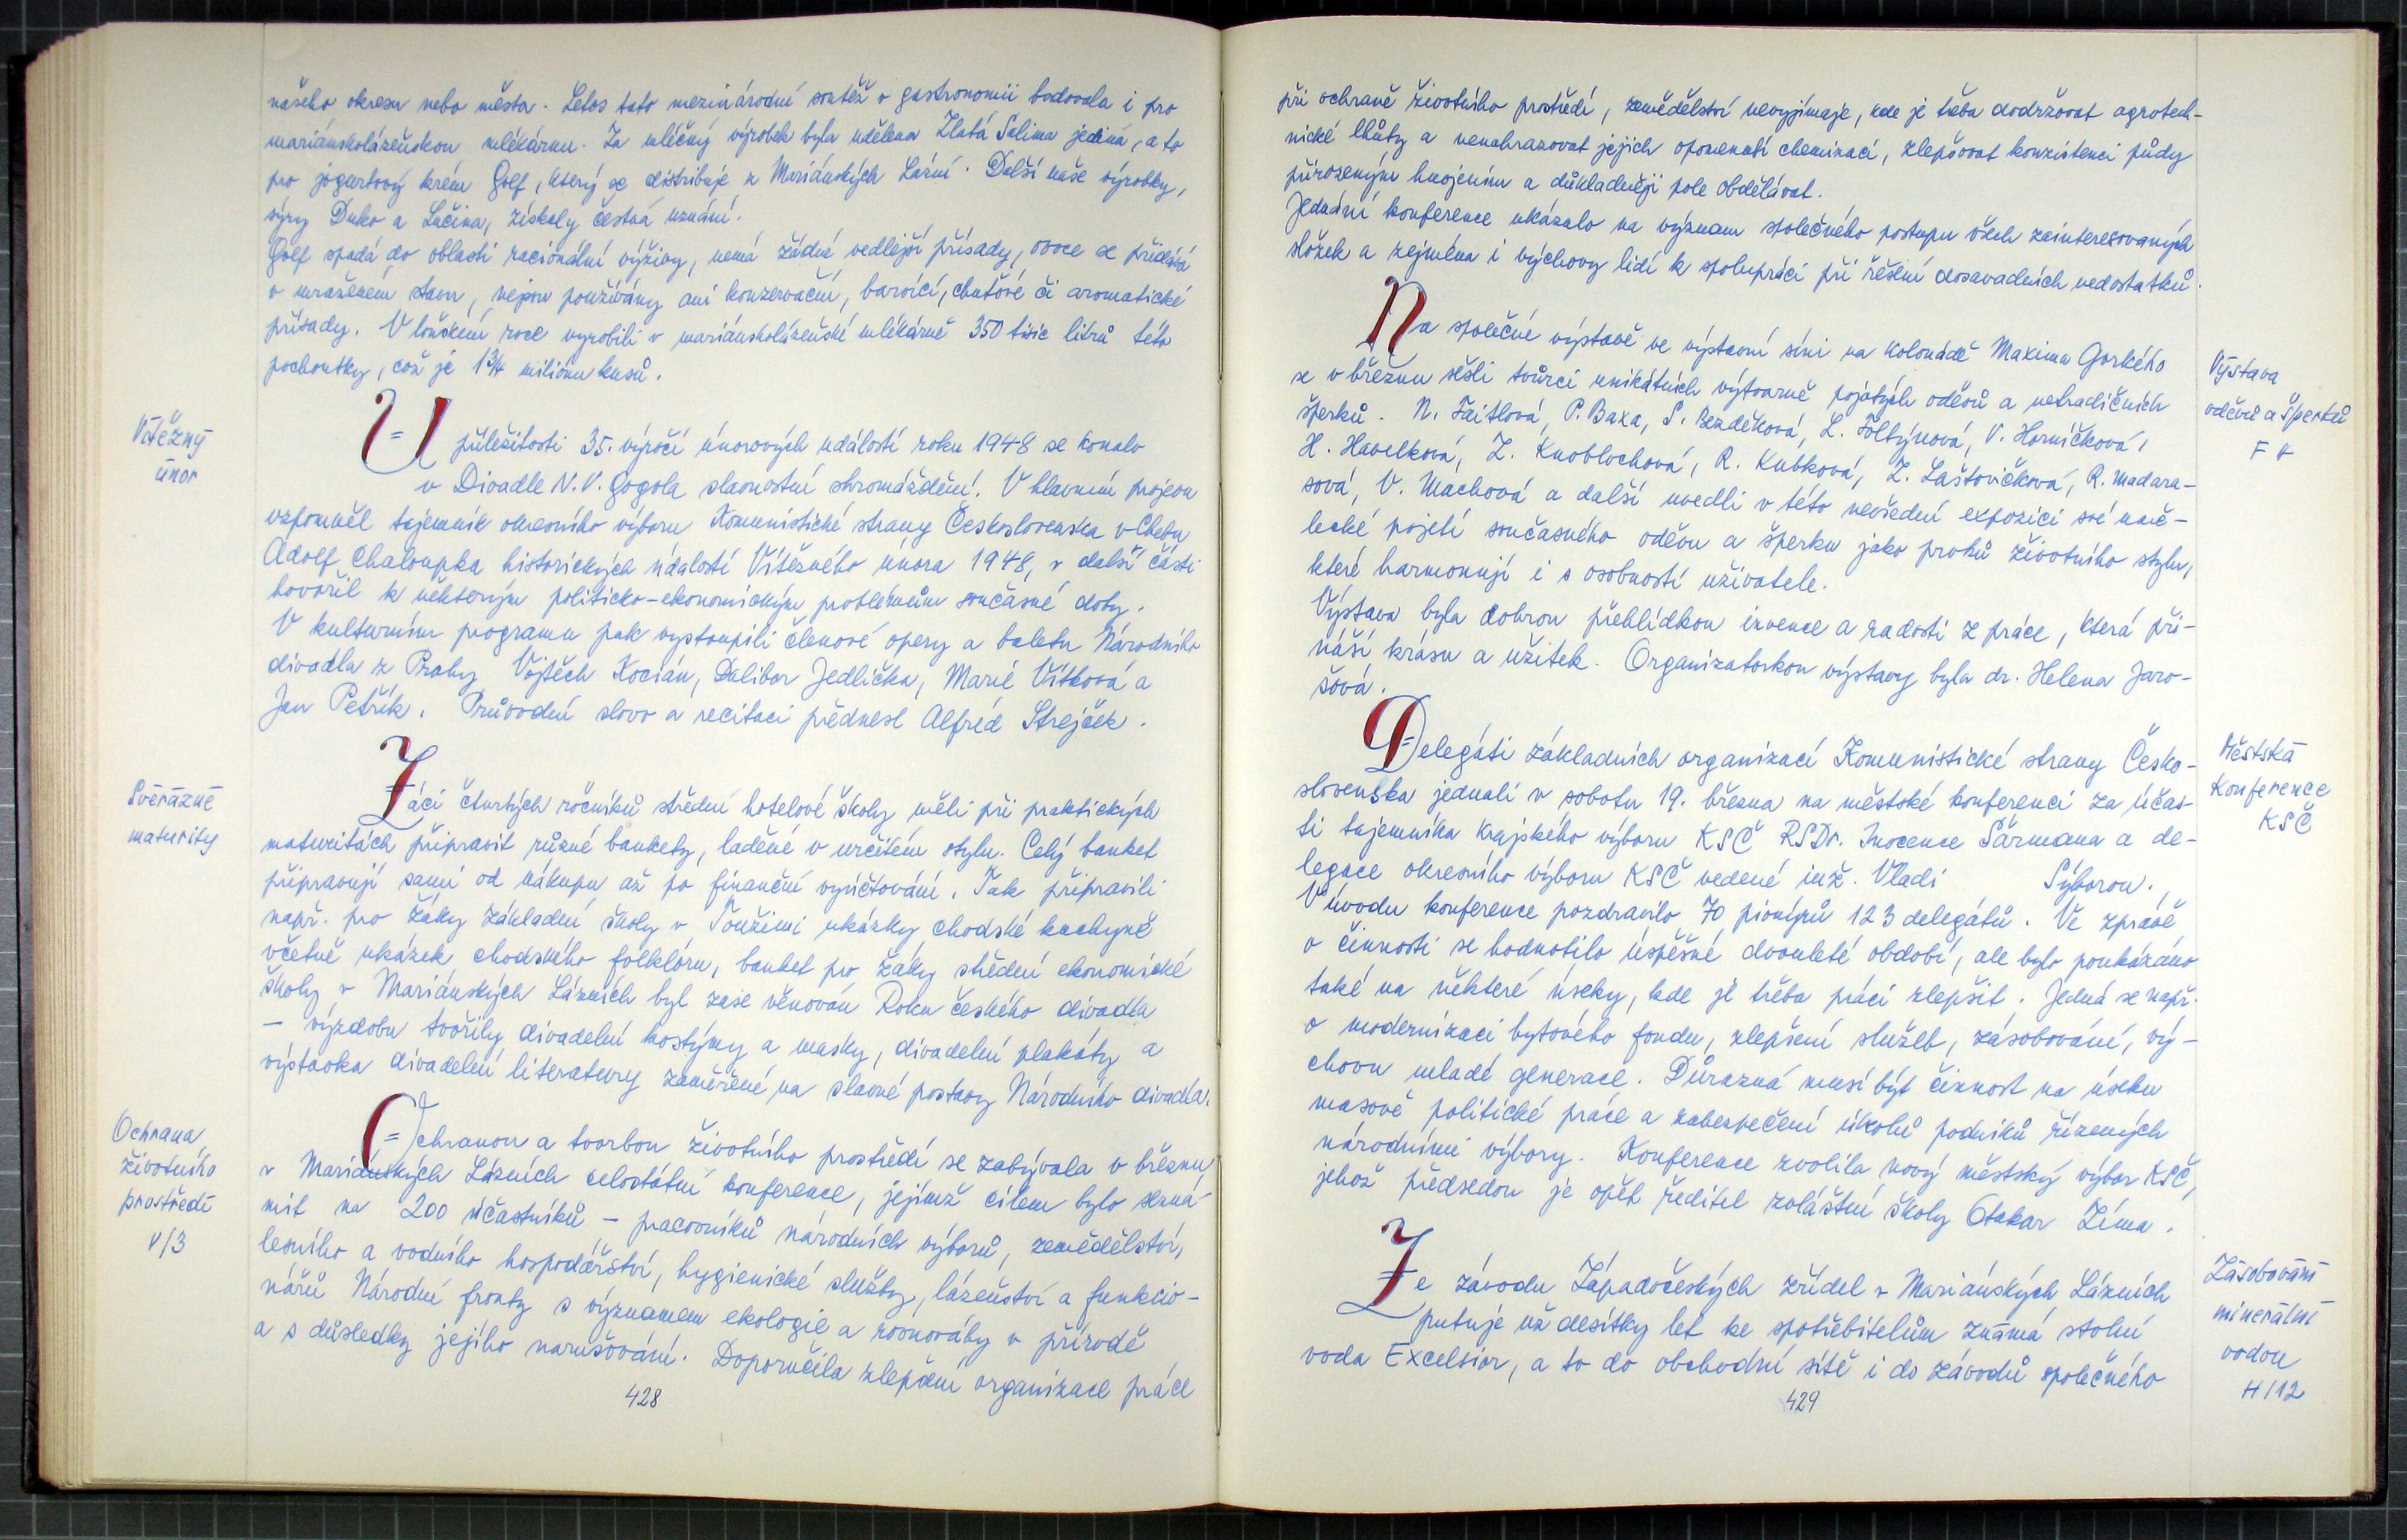 našeho okresu nebo města. Letos tato mezinárodní soutěž v gastronomii bodovala i pro
mariánskolázeňskou mlékárnu. Za mléčný výrobek byla udělena Zlatá Salima jediná, a to
pro jogurtový krém Golf, který se distribuje z Mariánských Lázní. Další naše výrobky,
sýry Duko a Lučina, získaly čestná uznání.
Golf spadá do oblasti racionální výživy, nemá žádné vedlejší přísady, ovoce se přidává
v mraženém stavu, nejsou používány ani konzervační, barvící, chuťové či aromatické
přísady. V loňském roce vyrobili v mariánskolázeňské mlékárně 350 tisíc litrů této
pochoutky, což je 1 3/4 miliónu kusů.
Vítězný
únor
U příležitosti 35. výročí únorových událostí roku 1948 se konalo
v Divadle N. V. Gogola slavnostní shromáždění. V hlavním projevu
vzpomněl tajemník okresního výboru Komunistické strany Československa v Chebu
Adolf Chaloupka historických událostí Vítězného února 1948, v další části
hovořil k některým politicko-ekonomickým problémům současné doby.
V kulturním programu pak vystoupili členové opery a baletu Národního
divadla z Prahy Vojtěch Kocián, Dalibor Jedlička, Marie Vítková a
Jan Petřík. Průvodní slovo a recitaci přednesl Alfréd Strejček.
Svérázné
maturity
Žáci čtvrtých ročníků střední hotelové školy měli při praktických
maturitách připravit různé bankety, laděné v určitém stylu. Celý banket
připravují sami od nákupu až po finanční vyúčtování. Tak připravili
např. pro žáky základní školy v Toužimi ukázky chodské kuchyně
včetně ukázek chodského folklóru, banket pro žáky střední ekonomické
školy v Mariánských Lázních byl zase věnován Roku českého divadla
– výzdobu tvořily divadelní kostýmy a masky, divadelní plakáty a
výstavka divadelní literatury zaměřené na slavné postavy Národního divadla.
Ochrana
životního
prostředí
V/3
Ochranou a tvorbou životního prostředí se zabývala v březnu
v Mariánských Lázních celostátní konference, jejímž cílem bylo sezná-
mit na 200 účastníků – pracovníků národních výborů, zemědělství,
lesního a vodního hospodářství, hygienické služby, lázeňství a funkcio-
nářů Národní fronty s významem ekologie a rovnováhy v přírodě
a s důsledky jejího narušování. Doporučila zlepšení organizace práce
428
při ochraně životního prostředí, zemědělství nevyjímaje, kde je třeba dodržovat agrotech-
nické lhůty a nenahrazovat jejich opomenutí chemizací, zlepšovat konzistenci půdy
přirozeným hnojením a důkladněji pole obdělávat.
Jednání konference ukázalo na význam společného postupu všech zainteresovaných
složek a zejména i výchovy lidí k spolupráci při řešení dosavadních nedostatků.
Výstava
oděvů a šperků
F 4
Na společné výstavě ve výstavní síni na kolonádě Maxima Gorkého
se v březnu sešli tvůrci unikátních výtvarně pojatých oděvů a netradičních
šperků. N. Faitlová, P. Baxa, S. Bezděková, L. Foltýnová, V. Horníčková,
H. Havelková, Z. Knoblochová, R. Kubková, Z. Laštovičková, R. Madara-
sová, V. Machová a další uvedli v této nevšední expozici své umě-
lecké pojetí současného oděvu a šperku jako prvků životního stylu,
které harmonují i s osobností uživatele.
Výstava byla dobrou přehlídkou invence a radosti z práce, která při-
náší krásu a užitek. Organizátorkou výstavy byla dr. Helena Jaro-
šová.
Městská
konference
KSČ
Delegáti základních organizací Komunistické strany Česko-
slovenska jednali v sobotu 19. března na městské konferenci za účas-
ti tajemníka krajského výboru KSČ RSDr. Inocence Šármana a de-
legace okresního výboru KSČ vedené inž. Vladi Sýborou.
V úvodu konference pozdravilo 70 pionýrů 123 delegátů. Ve zprávě
o činnosti se hodnotilo úspěšné dvouleté období, ale bylo poukázáno
také na některé úseky, kde je třeba práci zlepšit. Jedná se např.
o modernizaci bytového fondu, zlepšení služeb, zásobování, vý-
chovu mladé generace. Důrazná musí být činnost na úseku
masově politické práce a zabezpečení úkolů podniků řízených
národními výbory. Konference zvolila nový městský výbor KSČ,
jehož předsedou je opět ředitel zvláštní školy Otakar Zíma.
Zásobování
minerální
vodou
H/12
Ze závodu Západočeských zřídel v Mariánských Lázních
putuje už desítky let ke spotřebitelům známá stolní
voda Excelsior, a to do obchodní sítě i do závodů společného
429